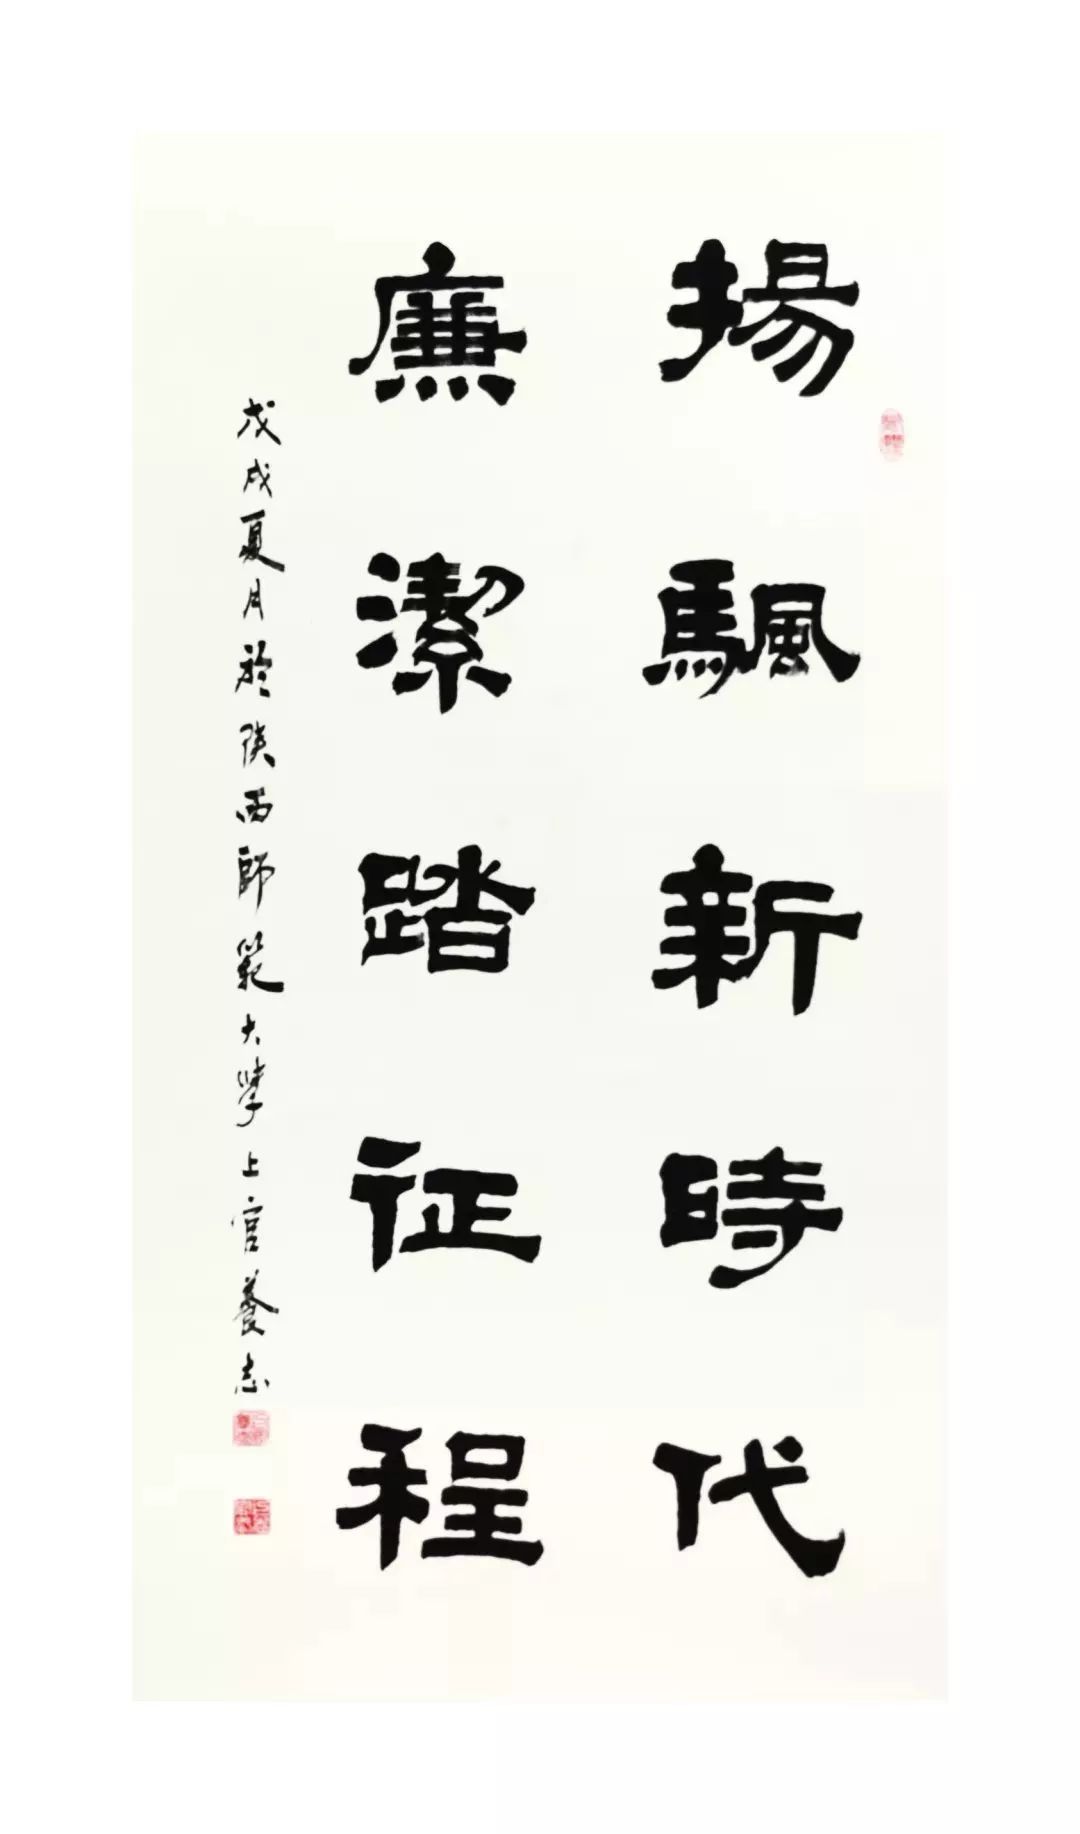 揚颿新時代
廉潔踏征程
戊戌夏月於陝西師範大學上官養志